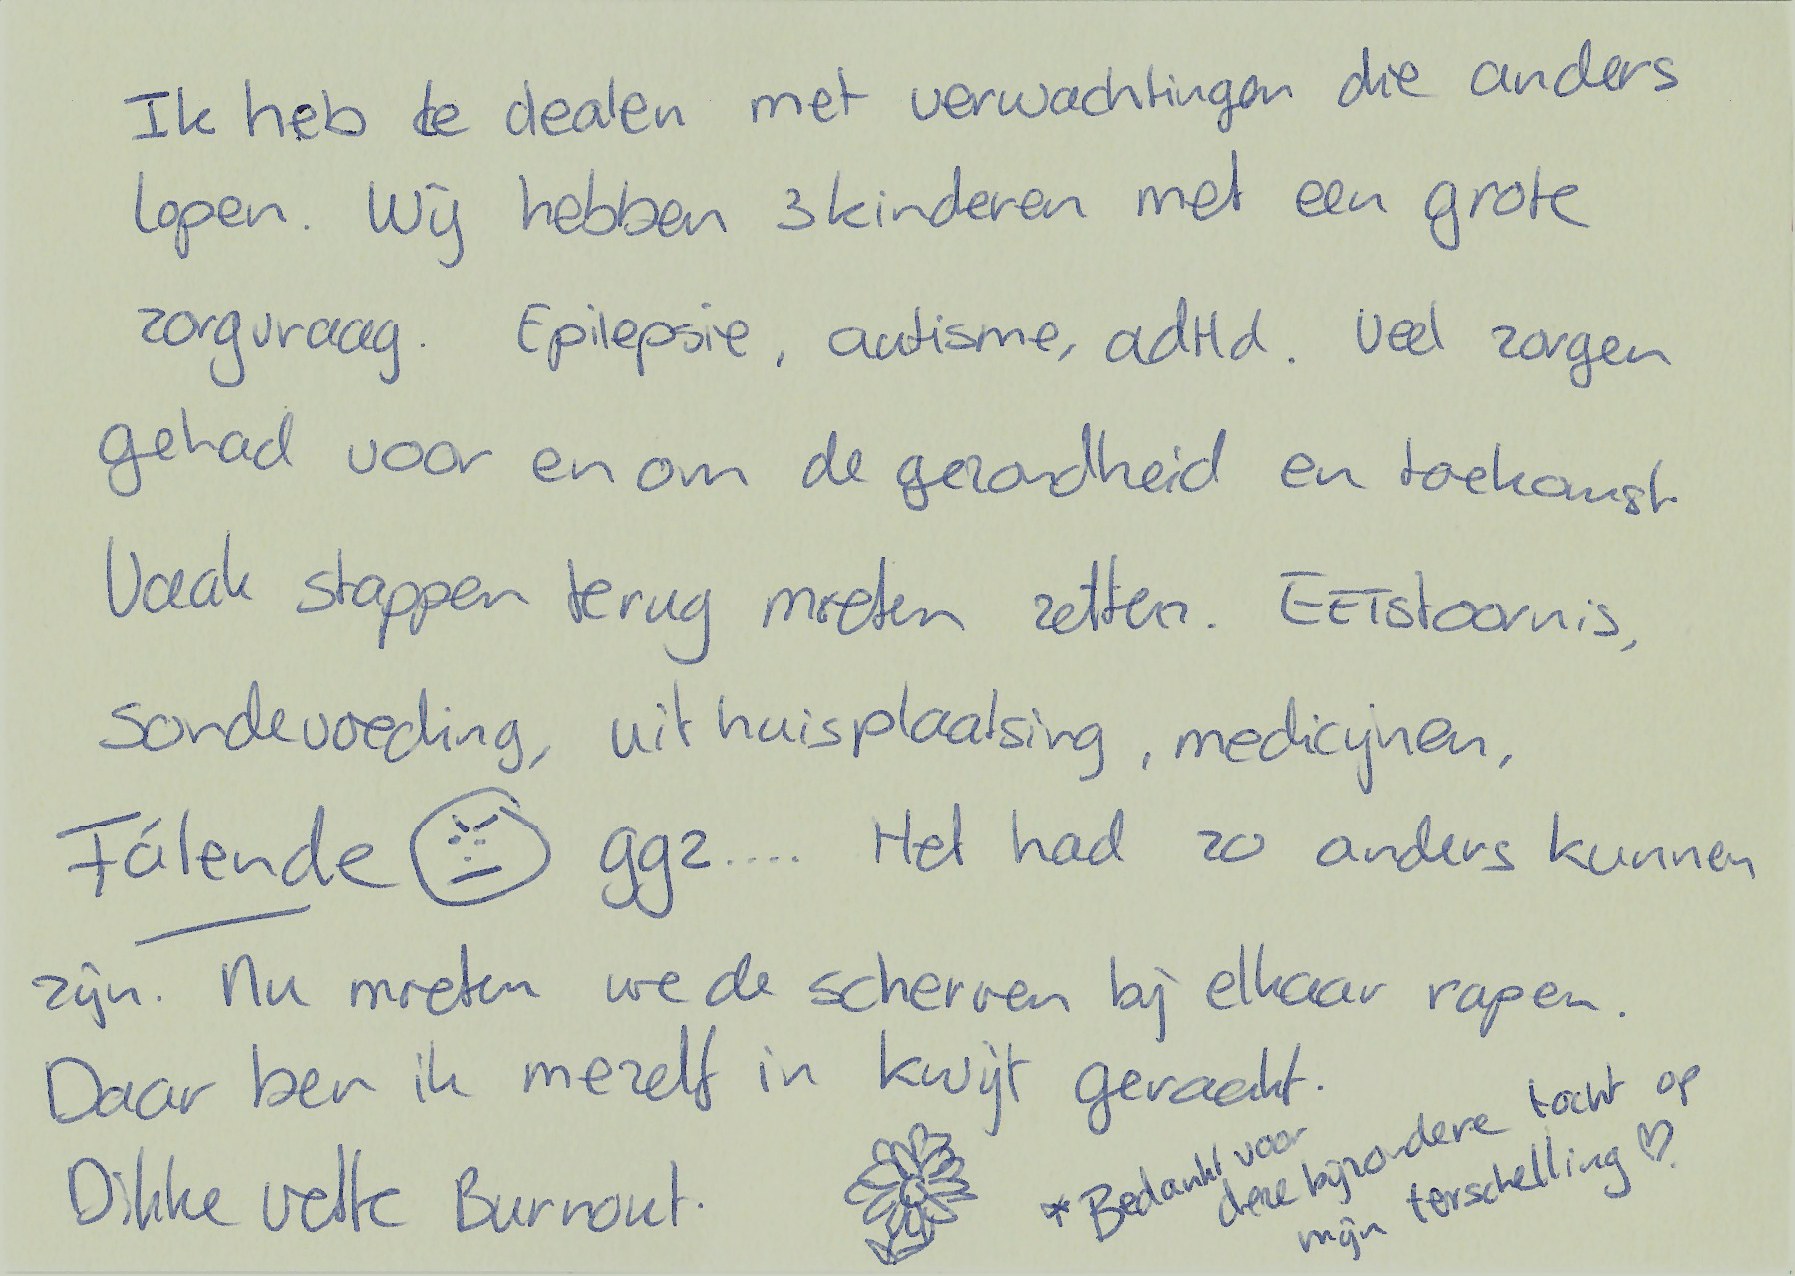 Ik heb te dealen met verwachtingen die anders
lopen. Wij hebben 3 kinderen met een grote
zorgvraag. Epilepsie, autisme, adHd. Veel zorgen
gehad voor en om de gezondheid en toekomst.
Vaak stappen terug moeten zetten. EETstoornis,
sondevoeding, uit huisplaatsing, medicijnen,
Fálende ggz.... Het had zo anders kunnen
zijn. Nu moeten we de scherven bij elkaar rapen.
Daar ben ik mezelf in kwijt geraakt.
Dikke vette Burnout.
*Bedankt voor
deze bijzondere tocht op
mijn terschelling ♡